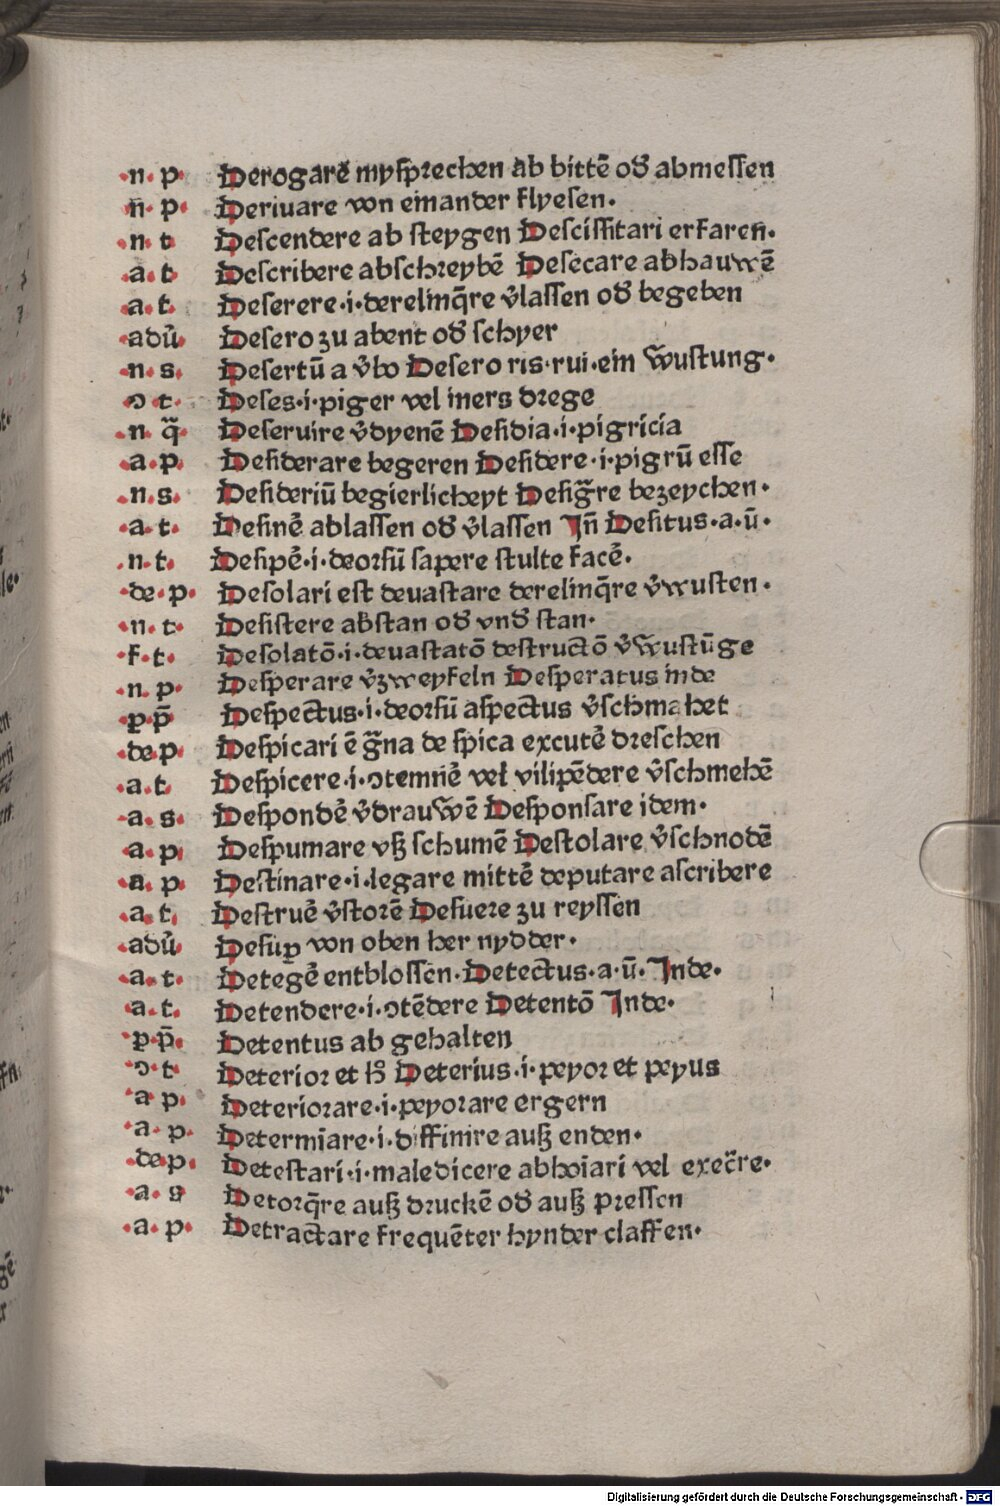 ·n· p· Derogarē mysprechen ab bittē od̕ abmessen
·n̄· p· Deriuare von einander flyesen·
·n· t Descendere ab steygen Descissitari erfaren̄·
·a· t Describere abschreybē Desecare abhauwē
·a· t· Deserere·i·derelinq̄re v̕lassen od̕ begeben
·adū· Desero zu abent od̕ schyer
·n· s· Desertū a v̕bo Desero ris·rui·ein Wustung·
·ɔ t· Deses·i·piger vel iners drege
·n q̄· Deseruire v̕dyenē Desidia·i·pigricia
·a·p· Desiderare begeren Desidere·i·pigrū esse
·n·s· Desideriū begierlicheyt Desiḡre bezeychen·
·a·t· Desinē ablassen od̕ v̕lassen Jn̄ Desitus·a·ū·
·n·t· Desipē·i·deorsū sapere stulte facē·
·de·p· Desolari est deuastare derelinq̄re v̕wusten·
·n·t· Desistere abstan od̕ vnd̕ stan·
·f·t· Desolatō·i·deuastatō destructō v̕Wustūge
·n p· Desperare v̕zweyfeln Desperatus inde
·p·p̄ Despectus·i·deorsū aspectus v̕schmahet
·de p· Despicari ē ḡna de spica excutē dreschen
·a·t· Despicere·i·ɔtemnē vel vilipēdere v̕schmehē
·a·s· Despondē v̕drauWē Desponsare idem·
·a·p· Despumare vß schumē Destolare v̕schnodē
·a p· Destinare·i·legare mittē deputare ascribere
·a·t· Destruē v̕storē Desuere zu reyssen
·adū· Desuꝑ von oben her nydder·
·a·t· Detegē entblossen·Detectus·a·ū·Jnde·
·a·t· Detendere·i·ɔtēdere Detentō Jnde·
·p·p̄· Detentus ab gehalten
·ɔ·t· Deterior et h̕ Deterius·i·peyor et peyus
·a p· Deteriorare·i·peyorare ergern
·a·p· Determīare·i·diffinire auß enden·
·de p· Detestari·i·maledicere abhoiari vel exec̄re·
·a·s Detorq̄re auß druckē od̕ auß pressen
·a·p· Detractare frequēter hynder claffen·
Digitalisierung gefördert durch die Deutsche Forschungsgemeinschaft - DFG